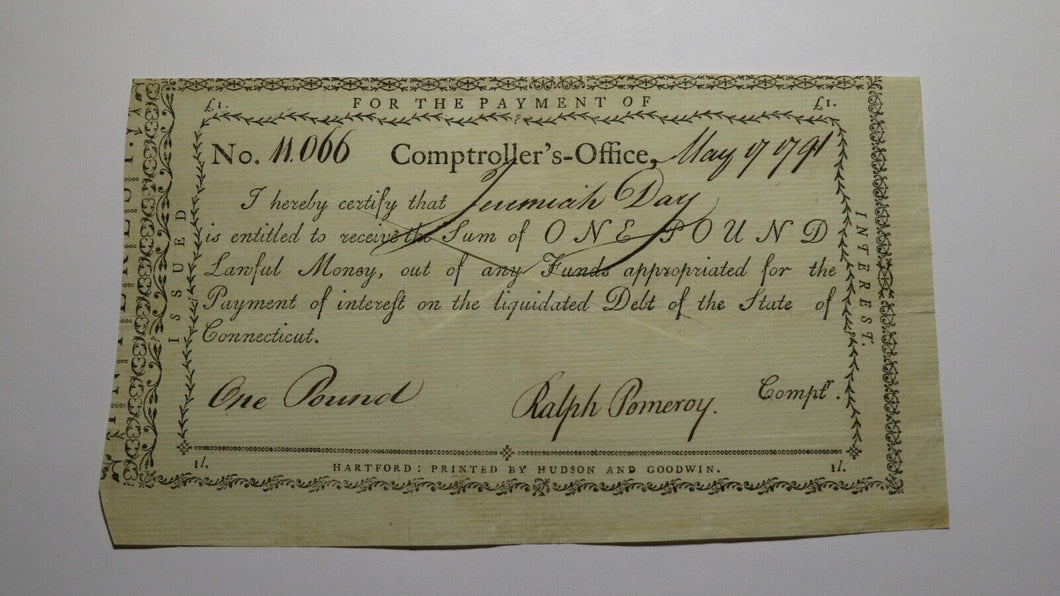 £1. FOR THE PAYMENT OF £1.
No. 11.066 Comptroller's-Office, May 17 1791
I hereby certify that Jeremiah Day
is entitled to receive the Sum of ONE POUND
Lawful Money, out of any Funds appropriated for the
Payment of interest on the liquidated Debt of the State of
Connecticut.
One Pound Ralph Pomeroy. Compt^r.
1/. HARTFORD: PRINTED BY HUDSON AND GOODWIN. 1/.
ISSUED
INTEREST.